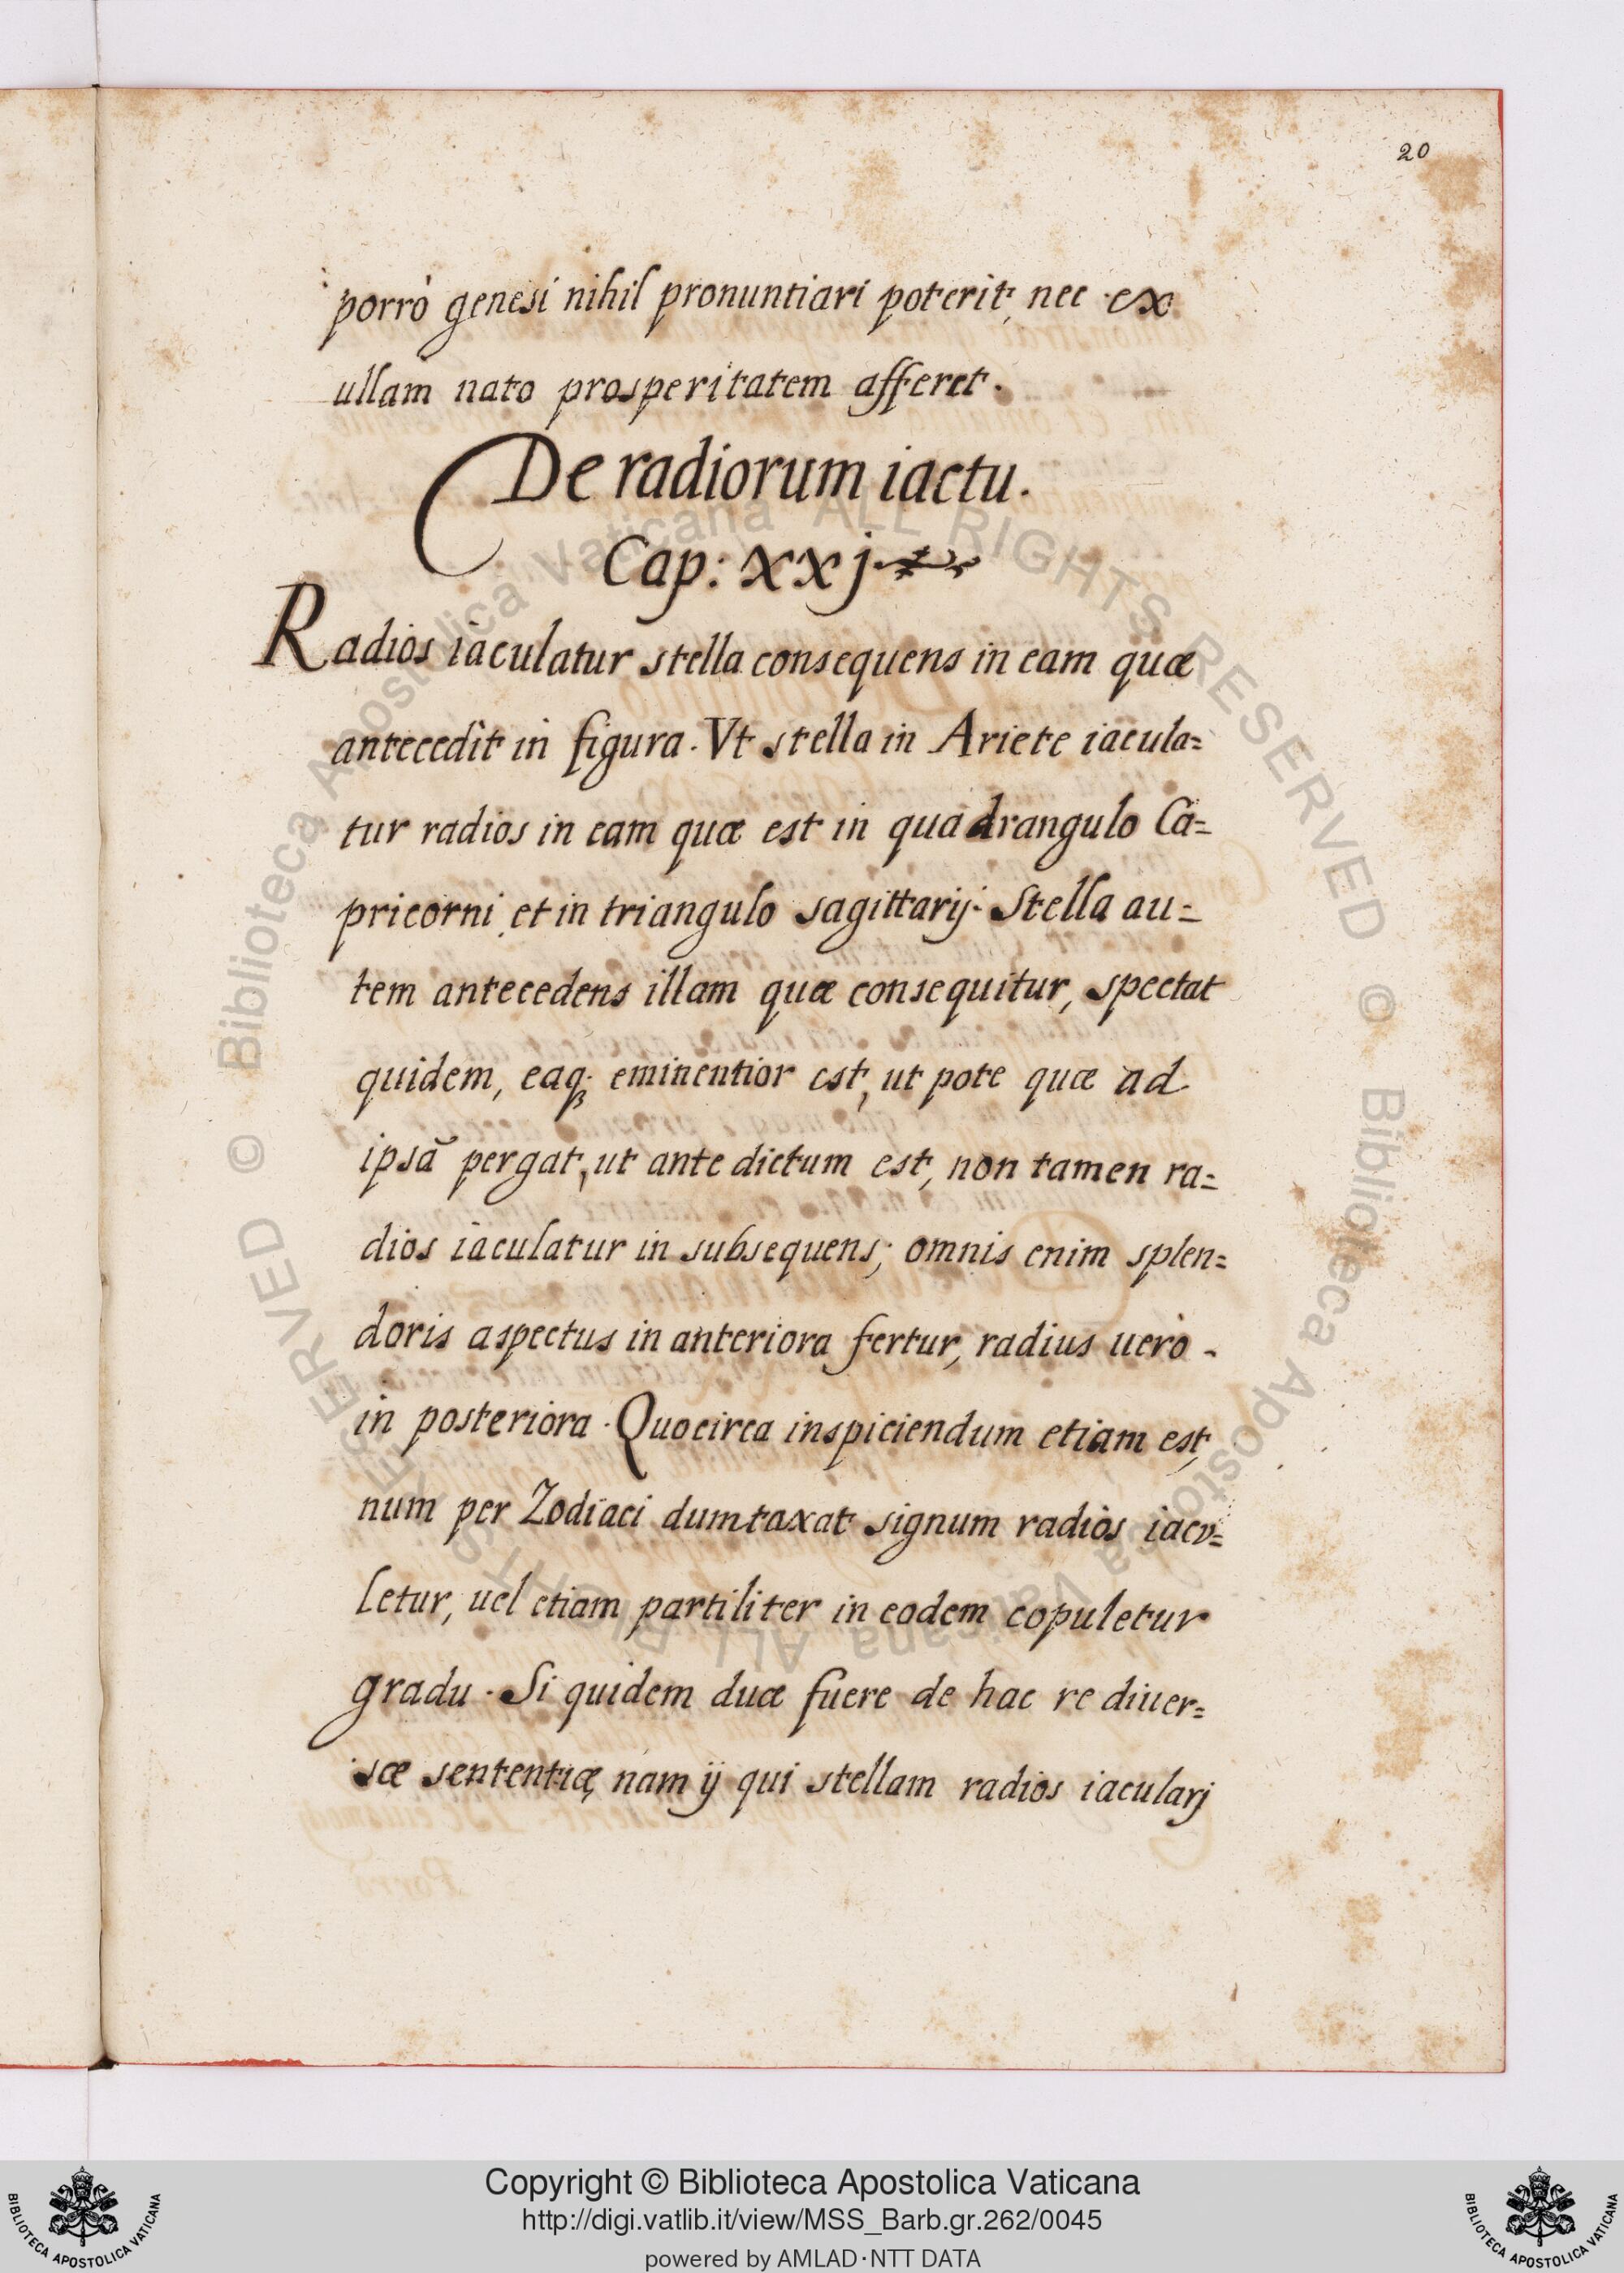 20
porrò genesi nihil pronuntiari poterit, nec ex
ullam nato prosperitatem afferet.
De radiorum iactu.
Cap: xxj
Radios iaculatur stella consequens in eam quæ
antecedit in figura. Vt stella in Ariete iacula=
tur radios in eam quæ est in quadrangulo Ca=
pricorni, et in triangulo sagittarij. Stella au=
tem antecedens illam quæ consequitur, spectat
quidem, eaq; eminentior est, ut pote quæ ad
ipsã pergat, ut ante dictum est, non tamen ra=
dios iaculatur in subsequens; omnis enim splen=
doris aspectus in anteriora fertur, radius uerò -
in posteriora. Quocirca inspiciendum etiam est,
num per Zodiaci dumtaxat signum radios iacu=
letur, uel etiam partiliter in eodem copuletur
gradu. Si quidem duæ fuere de hac re diuer=
sæ sententiæ, nam ij qui stellam radios iacularj
© Biblioteca Apostolica Vaticana ALL RIGHTS RESERVED © Biblioteca Apostolica Vaticana ALL RIGHTS RESERVED
Copyright © Biblioteca Apostolica Vaticana
http://digi.vatlib.it/view/MSS_Barb.gr.262/0045
powered by AMLAD·NTT DATA
BIBLIOTECA APOSTOLICA VATICANA
BIBLIOTECA APOSTOLICA VATICANA